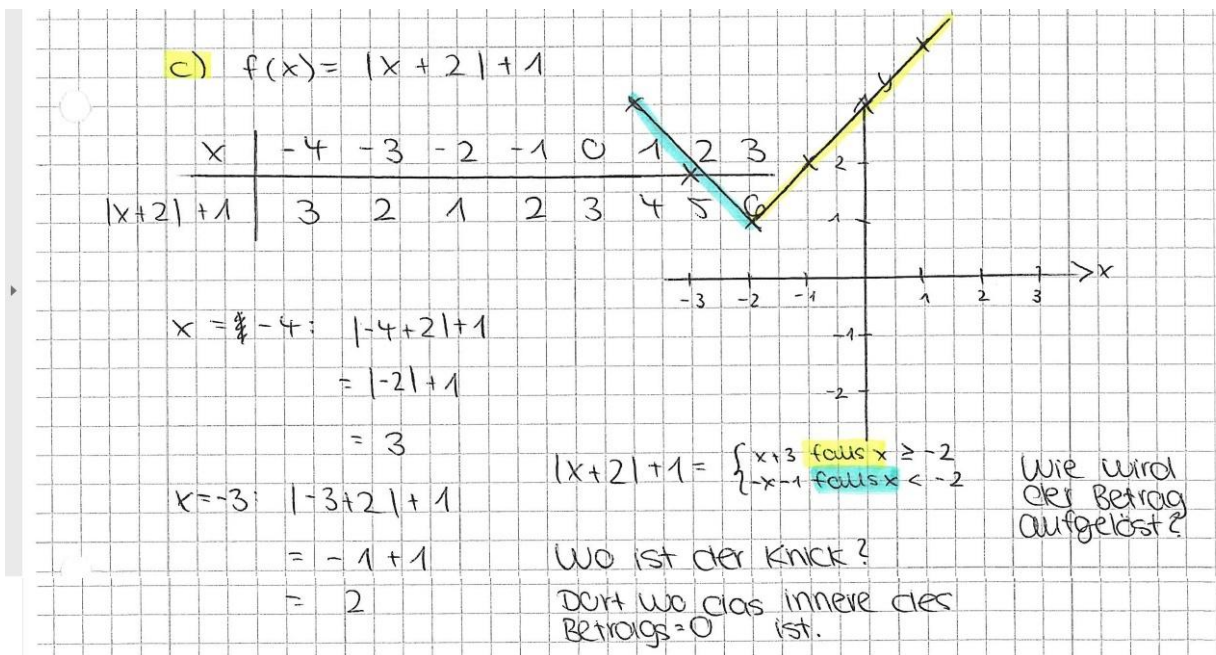 c) f(x) = |x + 2| + 1
x | -4 -3 -2 -1 0 1 2 3
|x+2| +1 | 3 2 1 2 3 4 5 6
y
2
1
-3 -2 -1 1 2 3 x
-1
-2
x = -4: |-4+2|+1
= |-2|+1
= 3
x=-3: |-3+2|+1
= -1+1
= 2
|x+2|+1 = { x+3 falls x ≥ -2
-x-1 falls x < -2
Wie wird
der Betrag
aufgelöst?
Wo ist der Knick?
Dort wo das innere des
Betrags=0 ist.